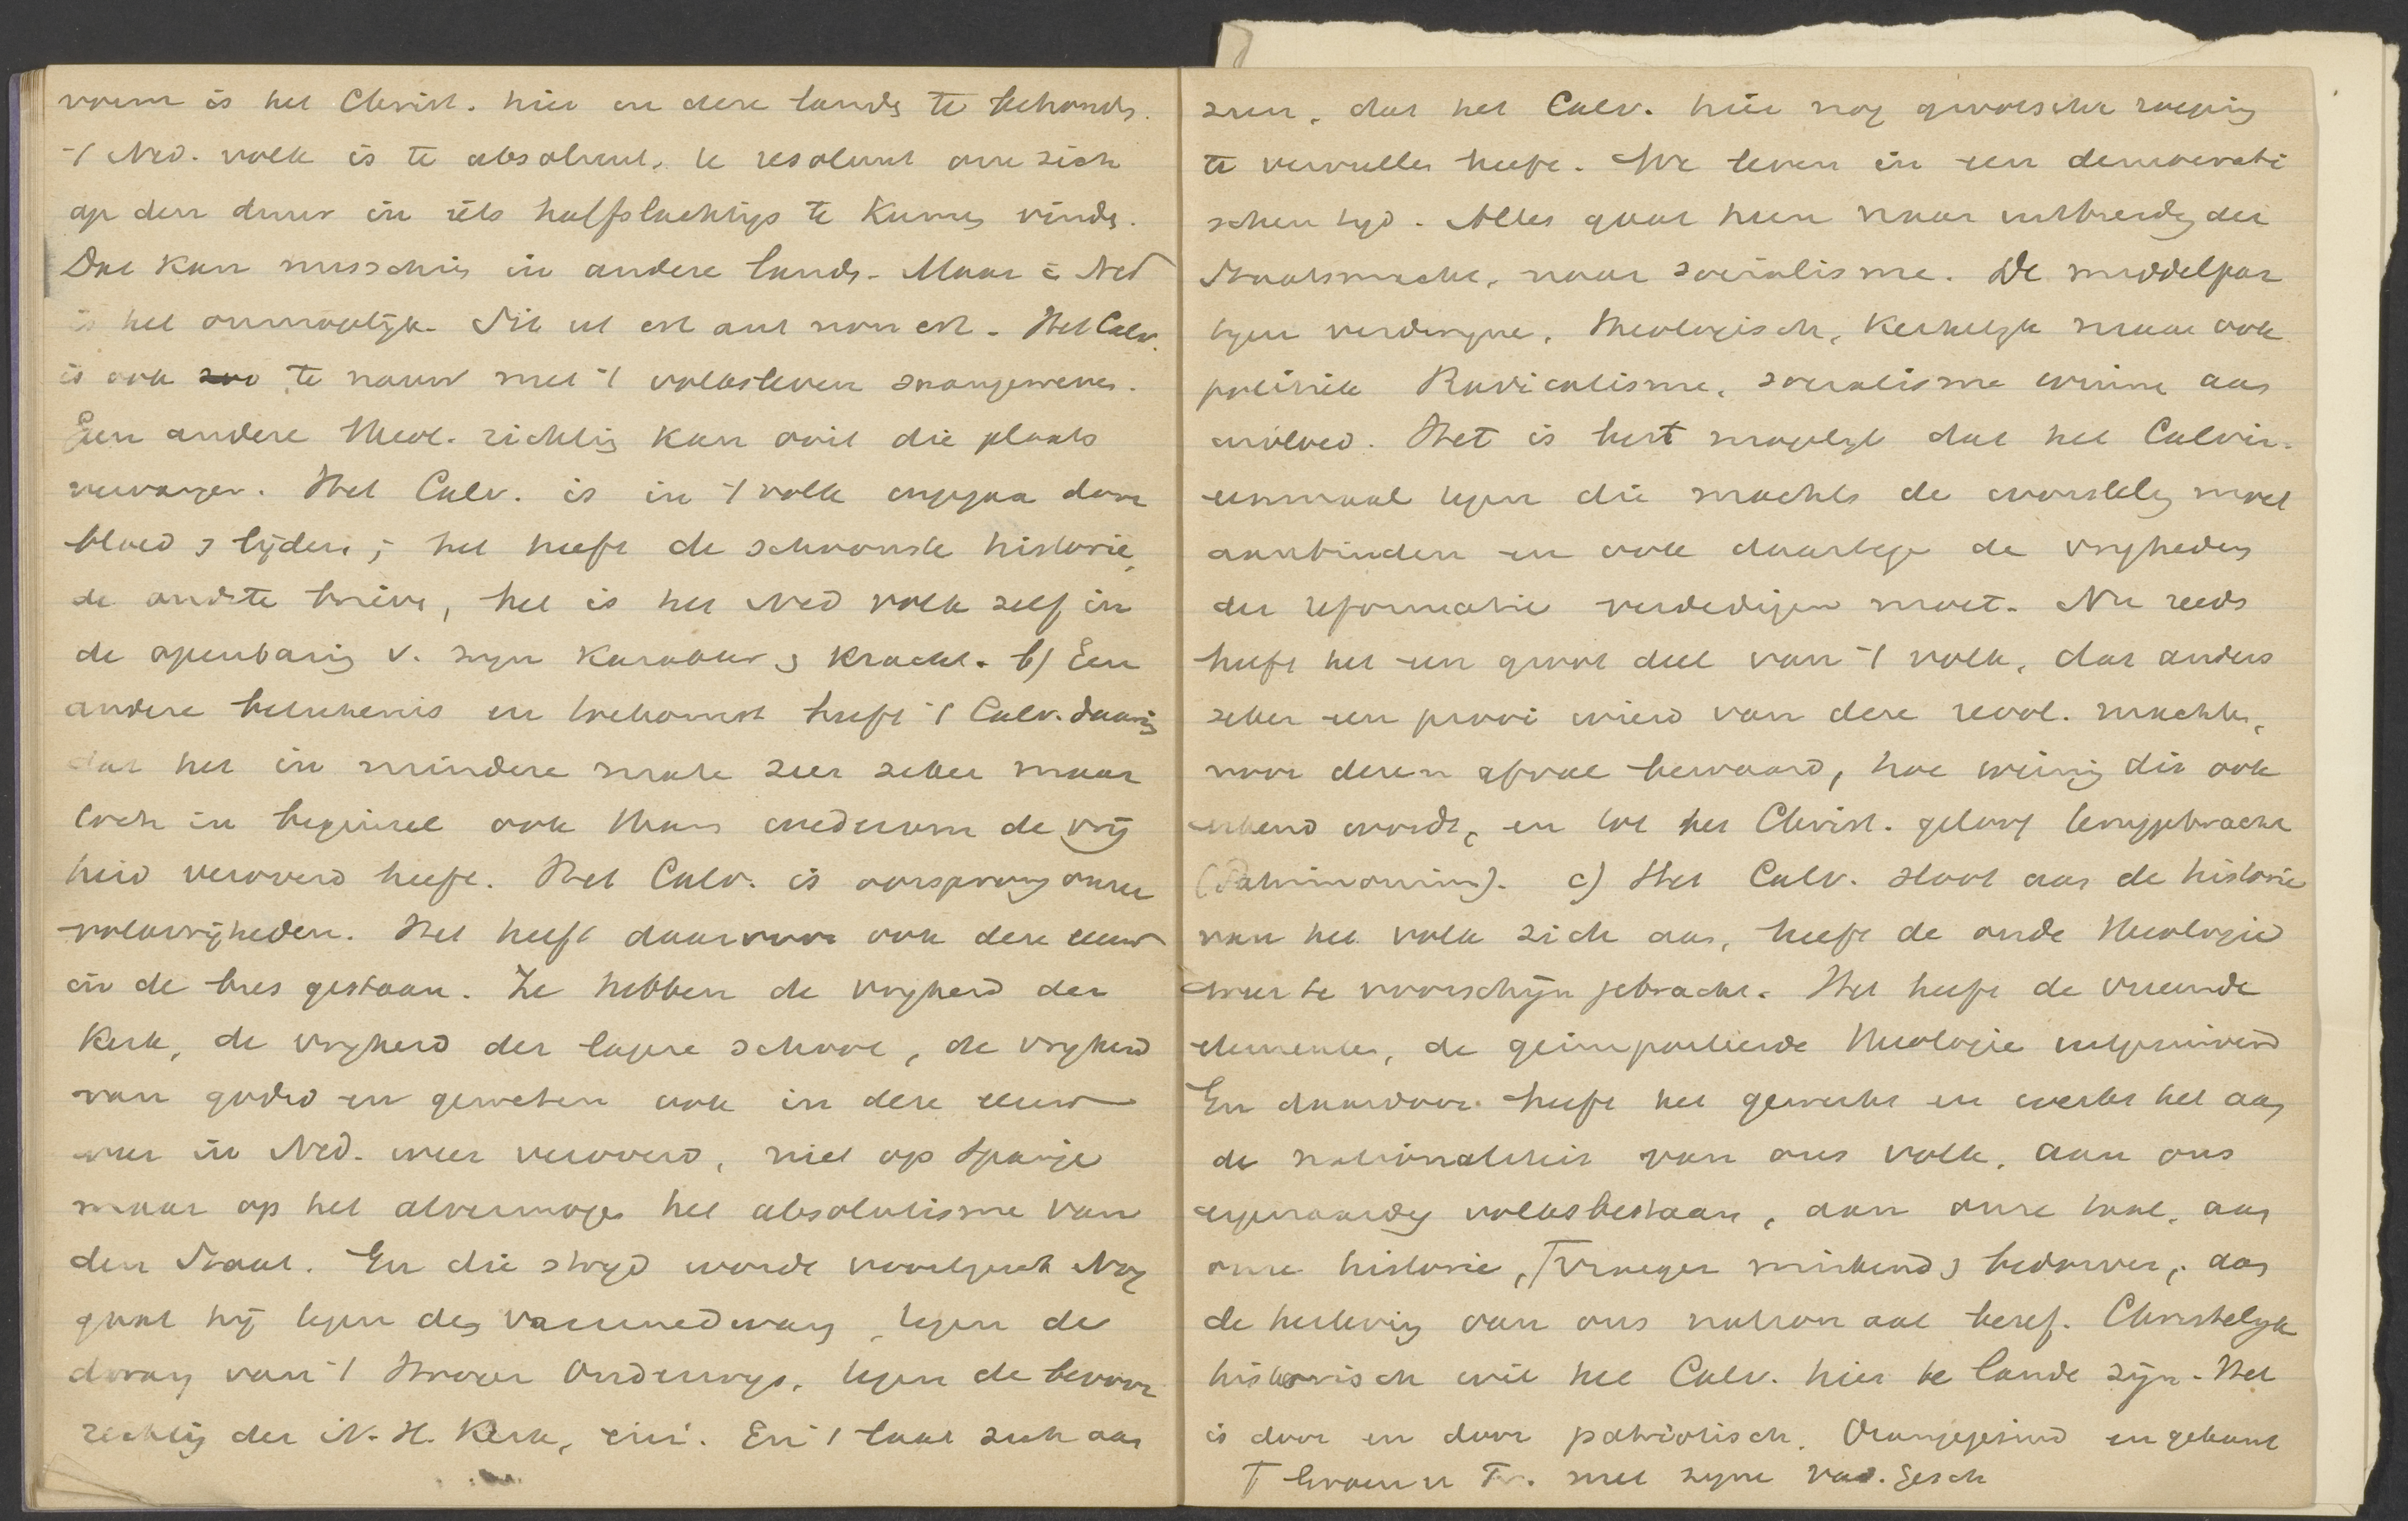 vorm is het Christ. hier en deze lande te behoude.
't Ned. volk is te absoluut, te resoluut om zich
op den duur in iets halfslachtigs te kunne vinde.
Dat kan misschien in andere lande. Maar i Ned
is het onmogelijk. Sit ut est aut non est. Het Calv.
is ook te nauw met 't volksleven saamgeweven.
Een andere theol. richting kan ooit die plaats
vervangen. Het Calv. is in 't volk ingegaa door
bloed & lijden; het heeft de schoonste historie,
de oudste brieve, het is het Ned volk zelf in
de openbaring v. zijn karakter & kracht. b) Een
andere beteekenis en toekomst heeft 't Calv. daarin
dat het in mindere mate zeer zeker maar
toch in beginsel ook thans wederom de vrij
heid veroverd heeft. Het Calv. is oorsprong onzer
volksvrijheden. Het heeft daarvoor ook deze eeuw
in de bres gestaan. Ze hebben de vrijheid der
Kerk, de vrijheid der lagere school, de vrijheid
van godsd en geweten ook in deze eeuw
weer in Ned. weer veroverd, niet op Spanje
maar op het alvermogen het absolutisme van
den Staat. En die strijd wordt voortgezet Nog
gaat hij tegen den vaccinedwang, tegen de
dwang van 't Hooger Onderwijs, tegen de bevoor
rechting der N. H. Kerk, enz. En 't laat zich aan
zien, dat het Calv. hier nog grootsche roeping
te vervullen heeft. We leven in een democrati
schen tijd. Alles gaat heen naar uitbreiding der
Staatsmacht, naar socialisme. De middelpar
tijen verdwijnen. Theologisch, kerkelijk maar ook
politiek Radicalisme, socialisme winne aan
invloed. Het is best mogelijk dat het Calvin.
eenmaal tegen die machte de worsteling moet
aanbinden en ook daartege de vrijheden
der reformatie verdedigen moet. Nu reeds
heeft het een groot deel van 't volk, dat anders
zeker een prooi wierd van deze revol. machte,
voor dezen afval bewaard, hoe weinig dit ook
erkend wordt, en tot het Christ. geloof teruggebracht
(Patrimonium). c) Het Calv. sloot aan de historie
van het volk zich aan, heeft de oude theologie
weer te voorschijn gebracht. Het heeft de vreemde
elementen, de geimporteerde theologie uitgezuiverd
En daardoor heeft het gewerkt en werkt het aan
de nationaliteit van ons volk, aan ons
eigenaardig volksbestaan, aan onze taal, aan
onze historie, ꞇ vroeger miskend & bedorven, aan
de herleving van ons nationaal besef. Christelijk
historisch wil het Calv. hier te lande zijn. Het
is door en door patriotisch. Oranjegezind en gekant
ꞇ Groen v Pr. met zijne vad. gesch